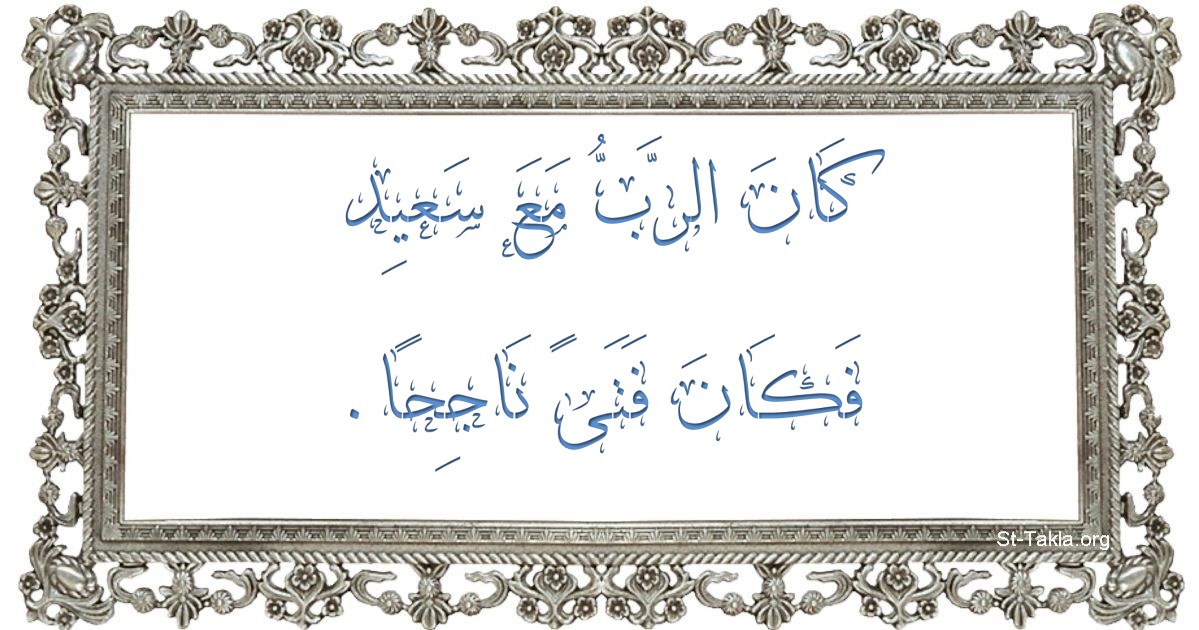 كَانَ الرَّبُّ مَعَ سَعِيدِ
فَكَانَ فَتَىً نَاجِحًا .
St-Takla.org